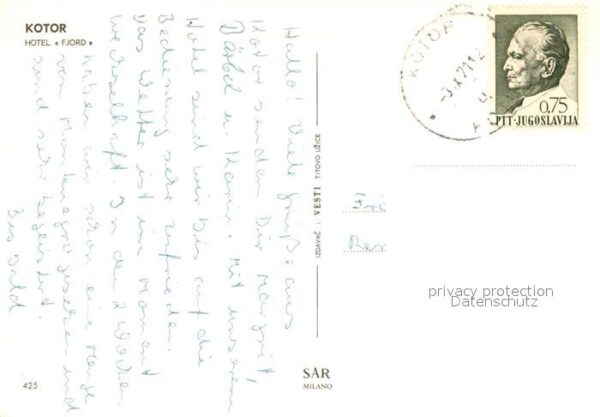 KOTOR
HOTEL « FJORD »
Hallo! Viele Grüße aus
Kotor senden Dir Margrit,
Bärbel u. Karin. Mit unserem
Hotel sind wir bis auf die
Bedienung sehr zufrieden.
Das Wetter ist im Moment
wechselhaft. In den 2 Wochen
haben wir schon eine Menge
von Montenegro gesehen und
sind sehr begeistert.
Bis bald
425
IZDAVAČ : VESTI TITOVO UŽICE
SAR
MILANO
KOTOR
0.75
PTT-JUGOSLAVIJA
privacy protection
Datenschutz